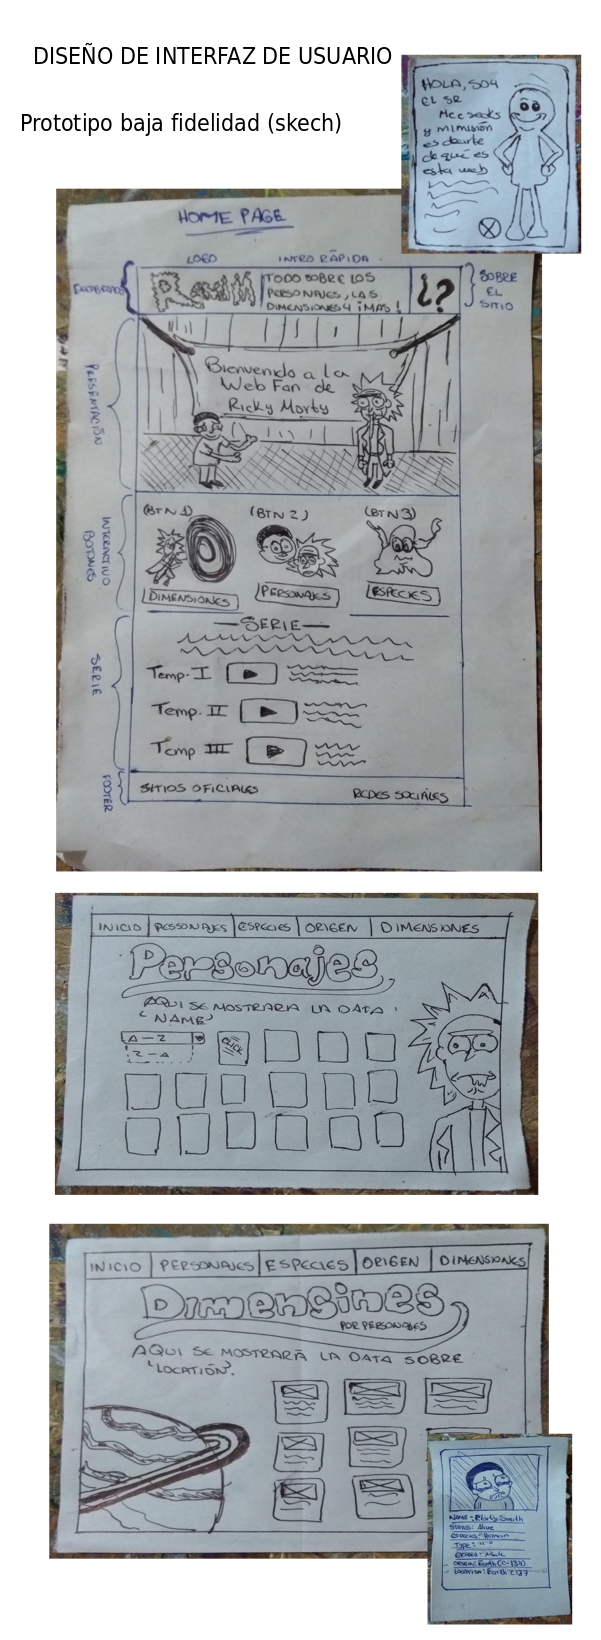 DISEÑO DE INTERFAZ DE USUARIO
Prototipo baja fidelidad (skech)
HOLA, SOY
EL SR
Mee seeks
y mi misión
es decirte
de qué es
esta web
HOME PAGE
LOGO
INTRO RÁPIDA
ENCABEZADO
RandM
TODO SOBRE LOS
PERSONAJES, LAS
DIMENSIONES Y ¡MAS!
¿?
SOBRE
EL
SITIO
PRESENTACIÓN
Bienvenido a la
Web Fan de
Ricky Morty
INTERACTIVO
BOTONES
(BTN 1)
(BTN 2)
(BTN 3)
DIMENSIONES
PERSONAJES
ESPECIES
SERIE
SERIE
Temp. I
Temp. II
Temp III
FOOTER
SITIOS OFICIALES
REDES SOCIALES
INICIO
PERSONAJES
ESPECIES
ORIGEN
DIMENSIONES
Personajes
AQUI SE MOSTRARA LA DATA
"NAME"
A - Z
Z - A
CLICK
INICIO
PERSONAJES
ESPECIES
ORIGEN
DIMENSIONES
Dimensines
POR PERSONAJES
AQUI SE MOSTRARÁ LA DATA SOBRE
"LOCATIÓN".
NAME: Morty Smith
STATUS: Alive
ESPECIES: Human
Type: " "
ORIGIN: Earth (C-137)
LOCATION: Earth C137